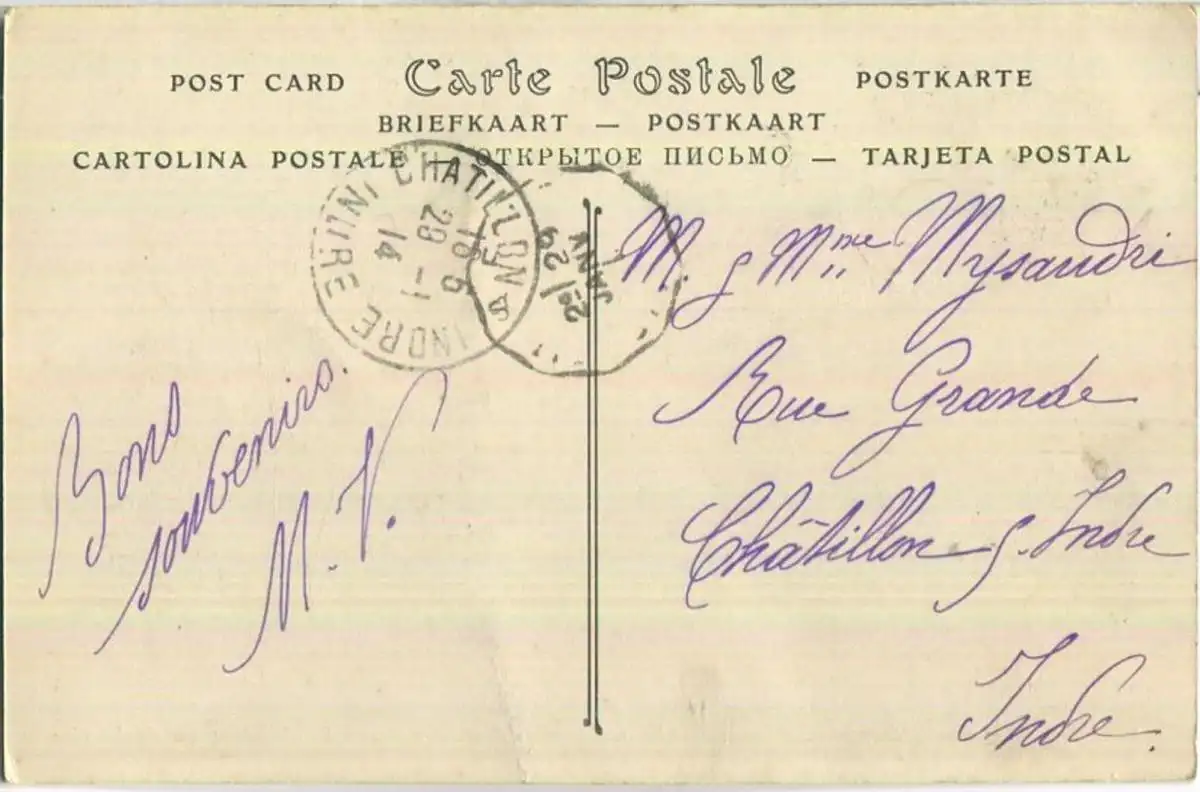 POST CARD Carte Postale POSTKARTE
BRIEFKAART — POSTKAART
CARTOLINA POSTALE — ОТКРЫТОЕ ПИСЬМО — TARJETA POSTAL
CHATILLON S
INDRE
INDRE
16 5
28 -1
14
JANV
Bons
souvenirs.
M. V.
M. & Mme Mysandri
Rue Grande
Châtillon s. Indre
Indre.